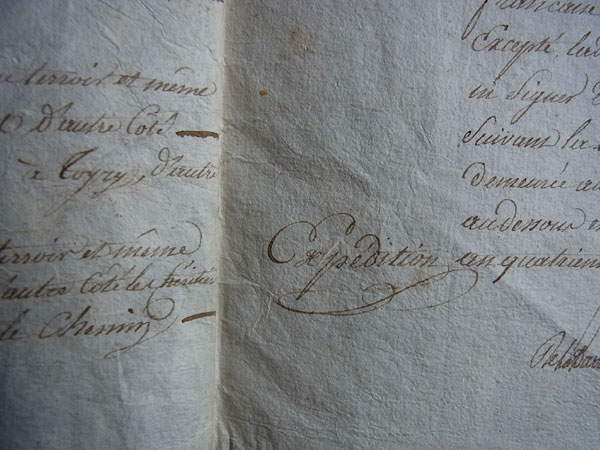 terroir et même
d'autre Coté
à Toyry, d'autre
terroir et même
d'autre Coté le héritier
le Chemin
Expédition
francaise
Excepté lad
ni Signer
Suivant la
demeurée au
audessous
an quatrieme